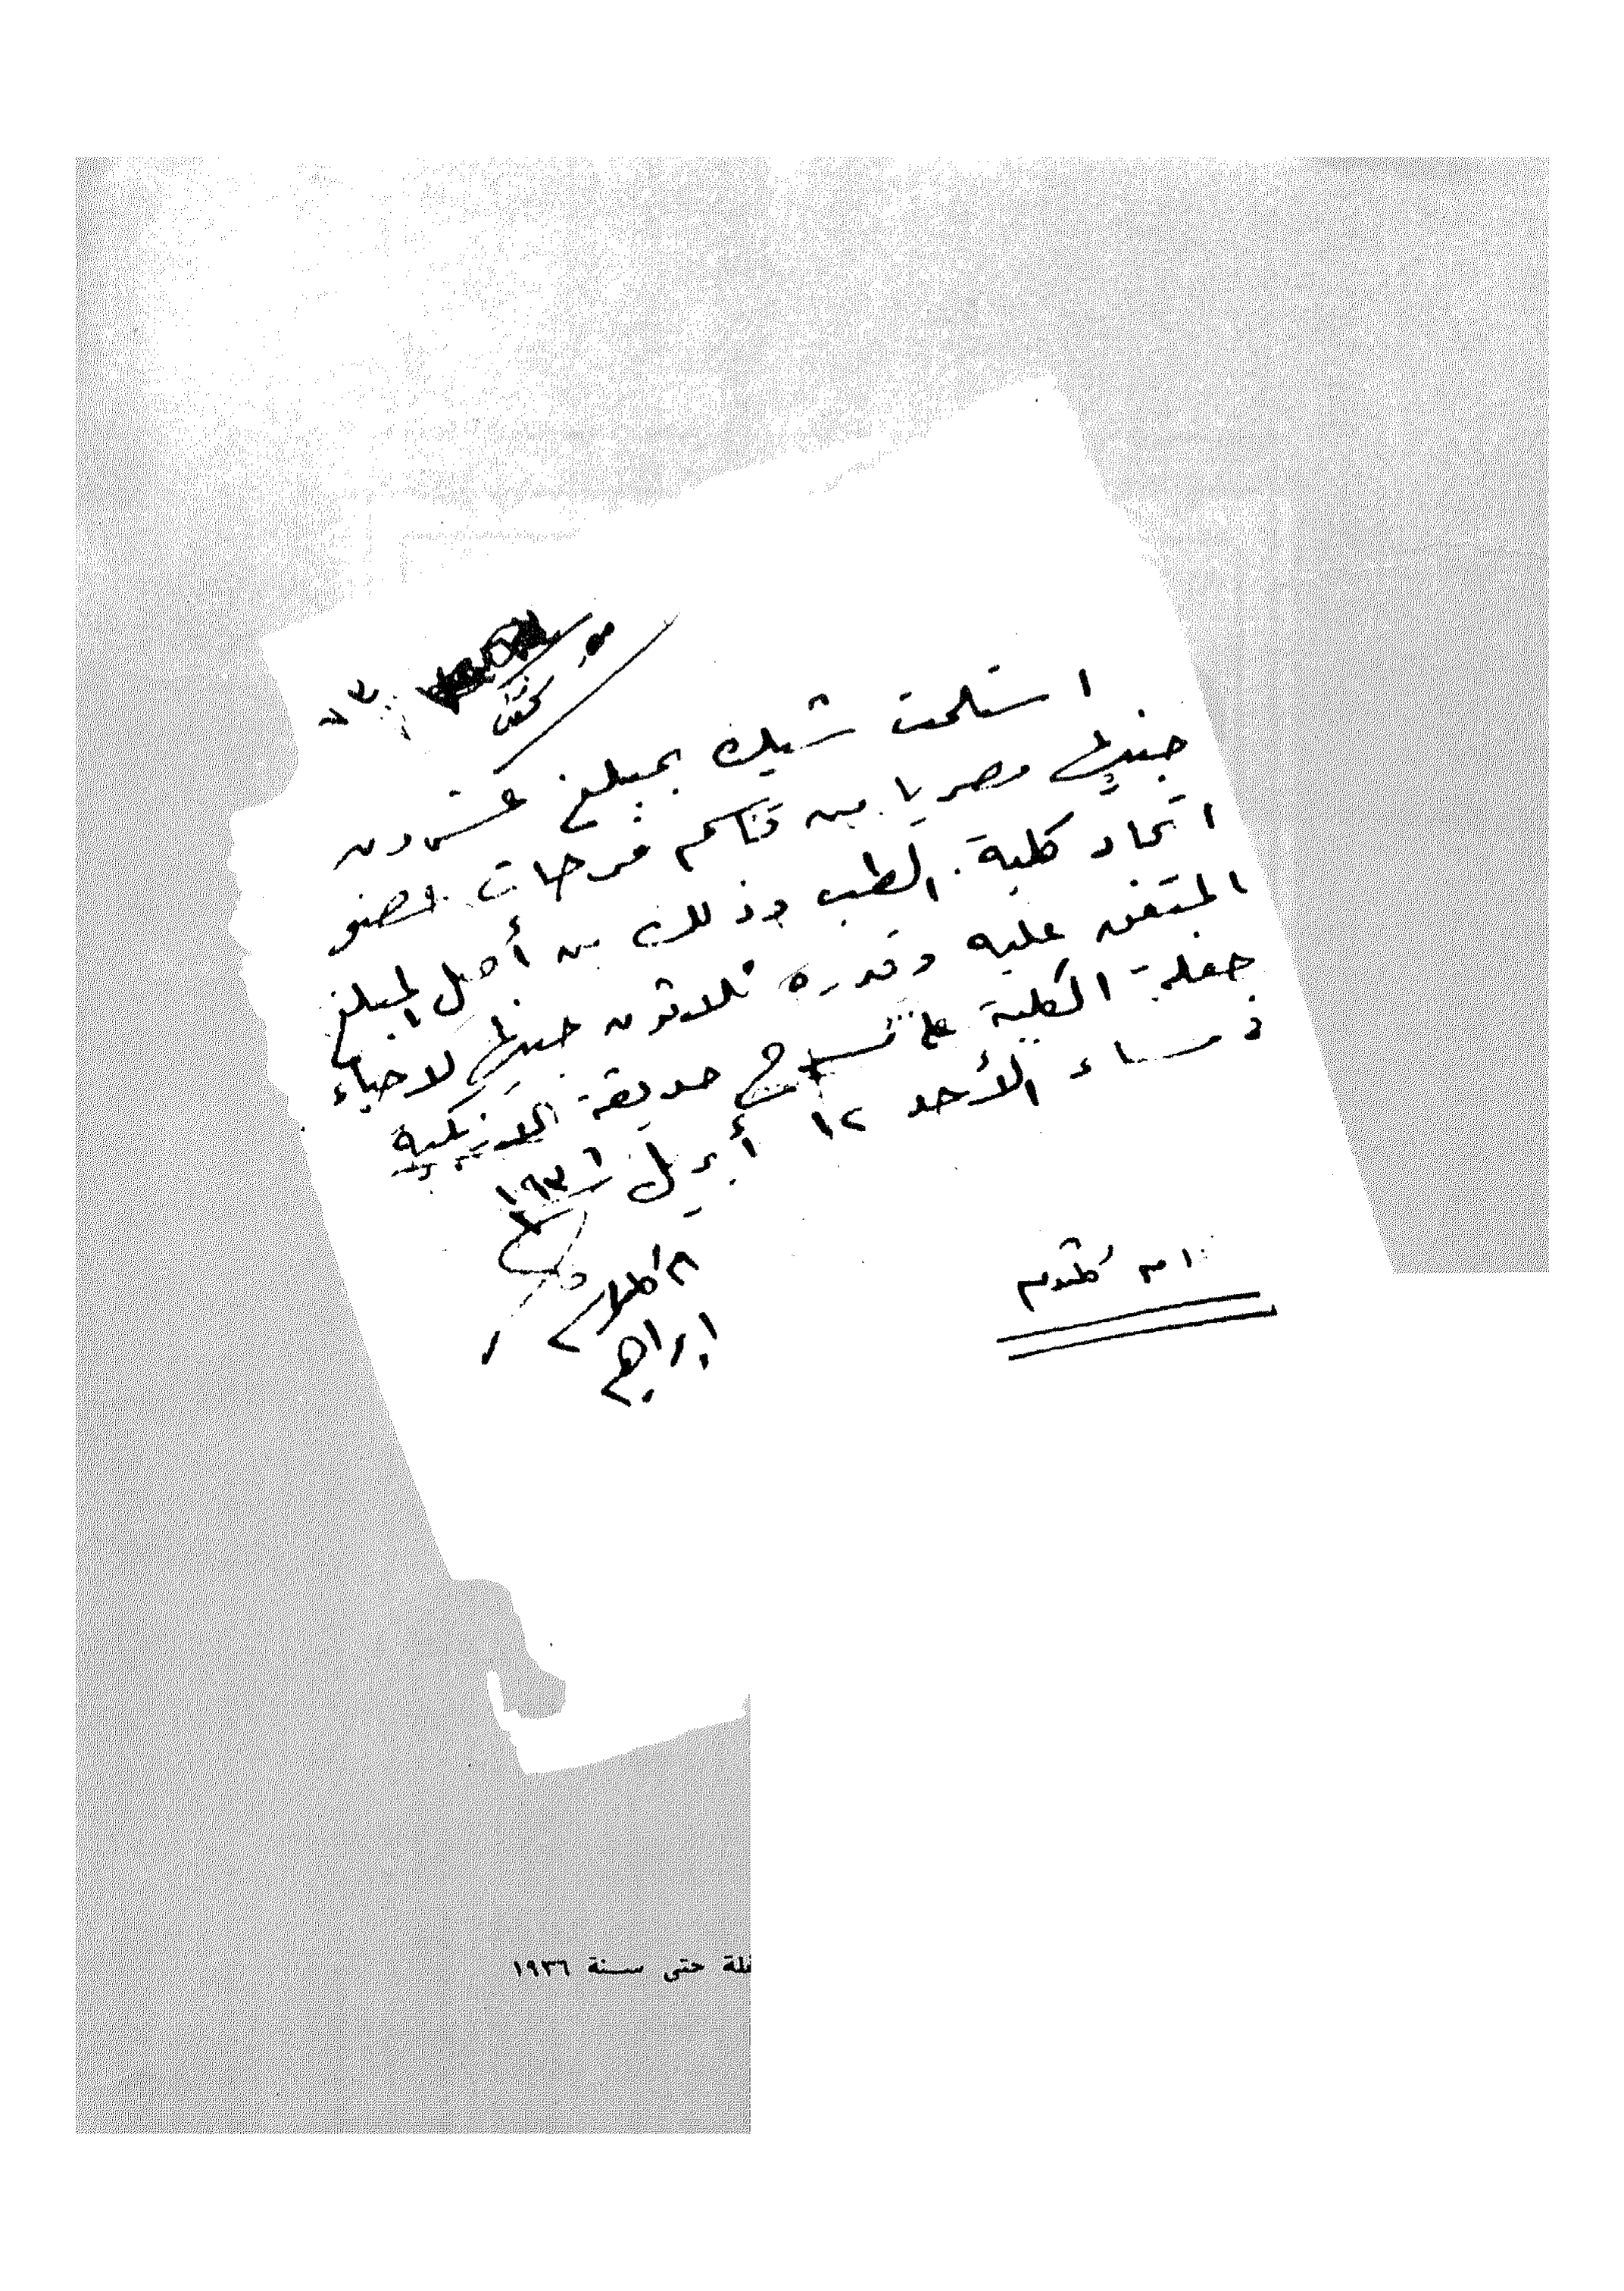 استلمت شيك بمبلغ عشرون
جنيها مصريا من قاسم فرحات عضو
اتحاد كلية الطب وذلك من أصل المبلغ
المتفق عليه وقدره ثلاثون جنيها لاحياء
حفلة الكلية على مسرح حديقة الازبكية
في مساء الأحد ١٢ أبريل ١٩٣٦
ام كلثوم
ابراهيم
حتى سنة ١٩٣٦